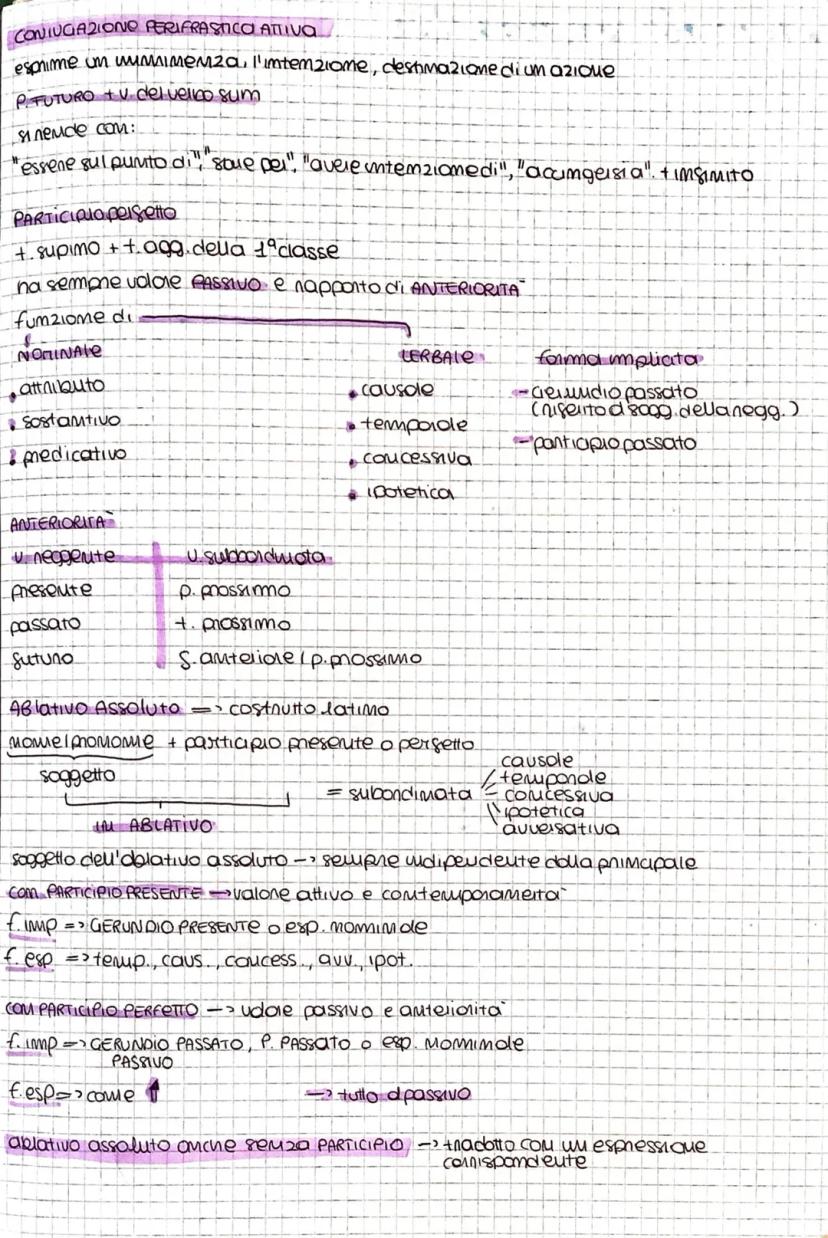 CONIUGAZIONE PERIFRASTICO ATTIVA
esprime un imminenza, l'intenzione, destinazione di un azione
P. FUTURO + v. del verbo sum
si rende con:
"essere sul punto di", "stare per", "avere intenzione di", "accingersi a". + INFINITO
PARTICIPIO perfetto
t. supino + t. agg. della 1ª classe
ha sempre valore PASSIVO e rapporto di ANTERIORITÀ
funzione di
NOMINALE VERBALE forma implicata
• attributo • causale - gerundio passato
(riferito al sogg. della regg.)
• sostantivo • temporale - participio passato
• predicativo • concessiva
• ipotetica
ANTERIORITÀ
v. reggente v. subordinata
presente p. prossimo
passato t. prossimo
futuro f. anteriore / p. prossimo
ABLATIVO ASSOLUTO => costrutto latino
nome/pronome + participio presente o perfetto
soggetto
IN ABLATIVO
= subordinata
causale
temporale
concessiva
ipotetica
avversativa
soggetto dell'ablativo assoluto -> sempre indipendente dalla principale
con PARTICIPIO PRESENTE -> valore attivo e contemporaneità
f. imp => GERUNDIO PRESENTE o esp. nominale
f. esp => temp., caus., concess., avv., ipot.
CON PARTICIPIO PERFETTO -> valore passivo e anteriorità
f. imp => GERUNDIO PASSATO, P. PASSATO o esp. nominale
PASSIVO
f. esp => come ↑ -> tutto al passivo
ablativo assoluto anche senza PARTICIPIO -> tradotto con un espressione
corrispondente